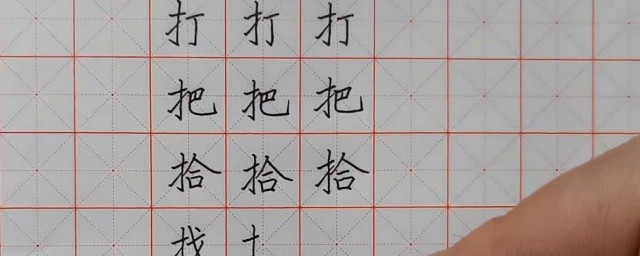 打 打 打
把 把 把
拾 拾 拾
找